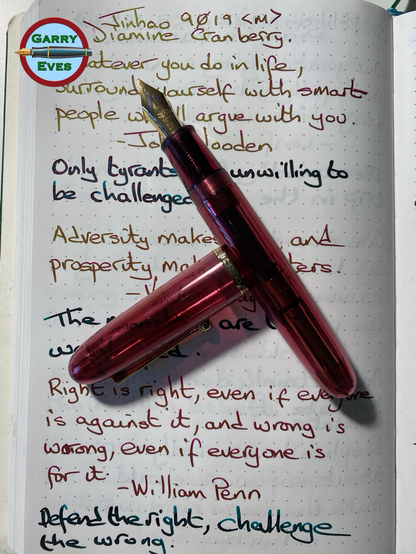 GARRY
EVES
Jinhao 9019 <M>
Diamine Cranberry.
you do in life,
surround yourself with smart
people argue with you.
Only tyrants unwilling to
be challenged
Adversity makes and
prosperity
The are
Right is right, even if everyone
is against it, and wrong is
wrong, even if everyone is
for it.
-William Penn
Defend the right, challenge
the wrong.